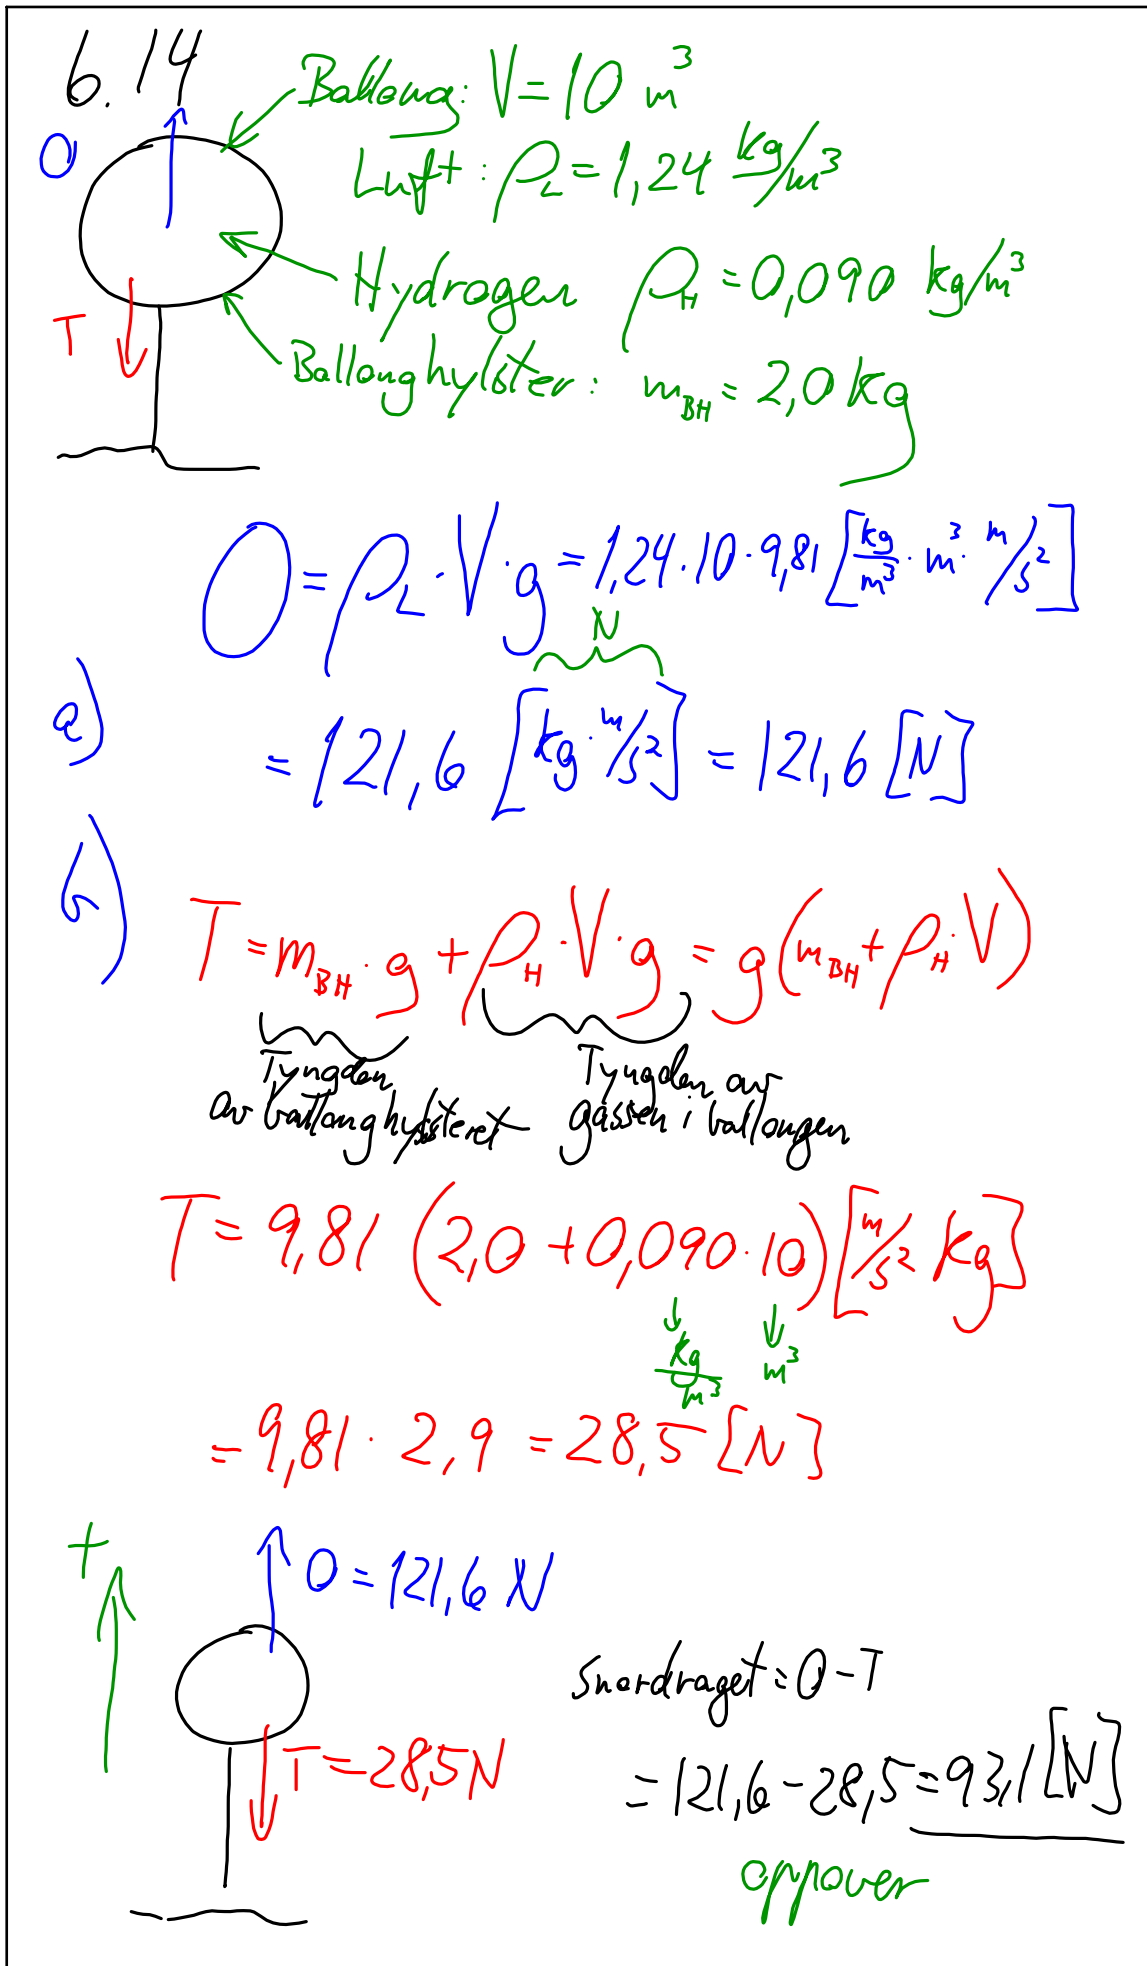 6.14
O
Ballong: V = 10 m³
Luft: ρ_L = 1,24 kg/m³
Hydrogen ρ_H = 0,090 kg/m³
T
Ballonghylster: m_BH = 2,0 kg
O = ρ_L · V · g = 1,24 · 10 · 9,81 [kg/m³ · m³ · m/s²]
N
a)
= 121,6 [kg · m/s²] = 121,6 [N]
b)
T = m_BH · g + ρ_H · V · g = g(m_BH + ρ_H · V)
Tyngden Tyngden av
av ballonghylsteret gassen i ballongen
T = 9,81 (2,0 + 0,090 · 10) [m/s² kg]
↓ ↓
kg/m³ m³
= 9,81 · 2,9 = 28,5 [N]
+
O = 121,6 N
Snordraget = O - T
T = 28,5 N
= 121,6 - 28,5 = 93,1 [N]
oppover